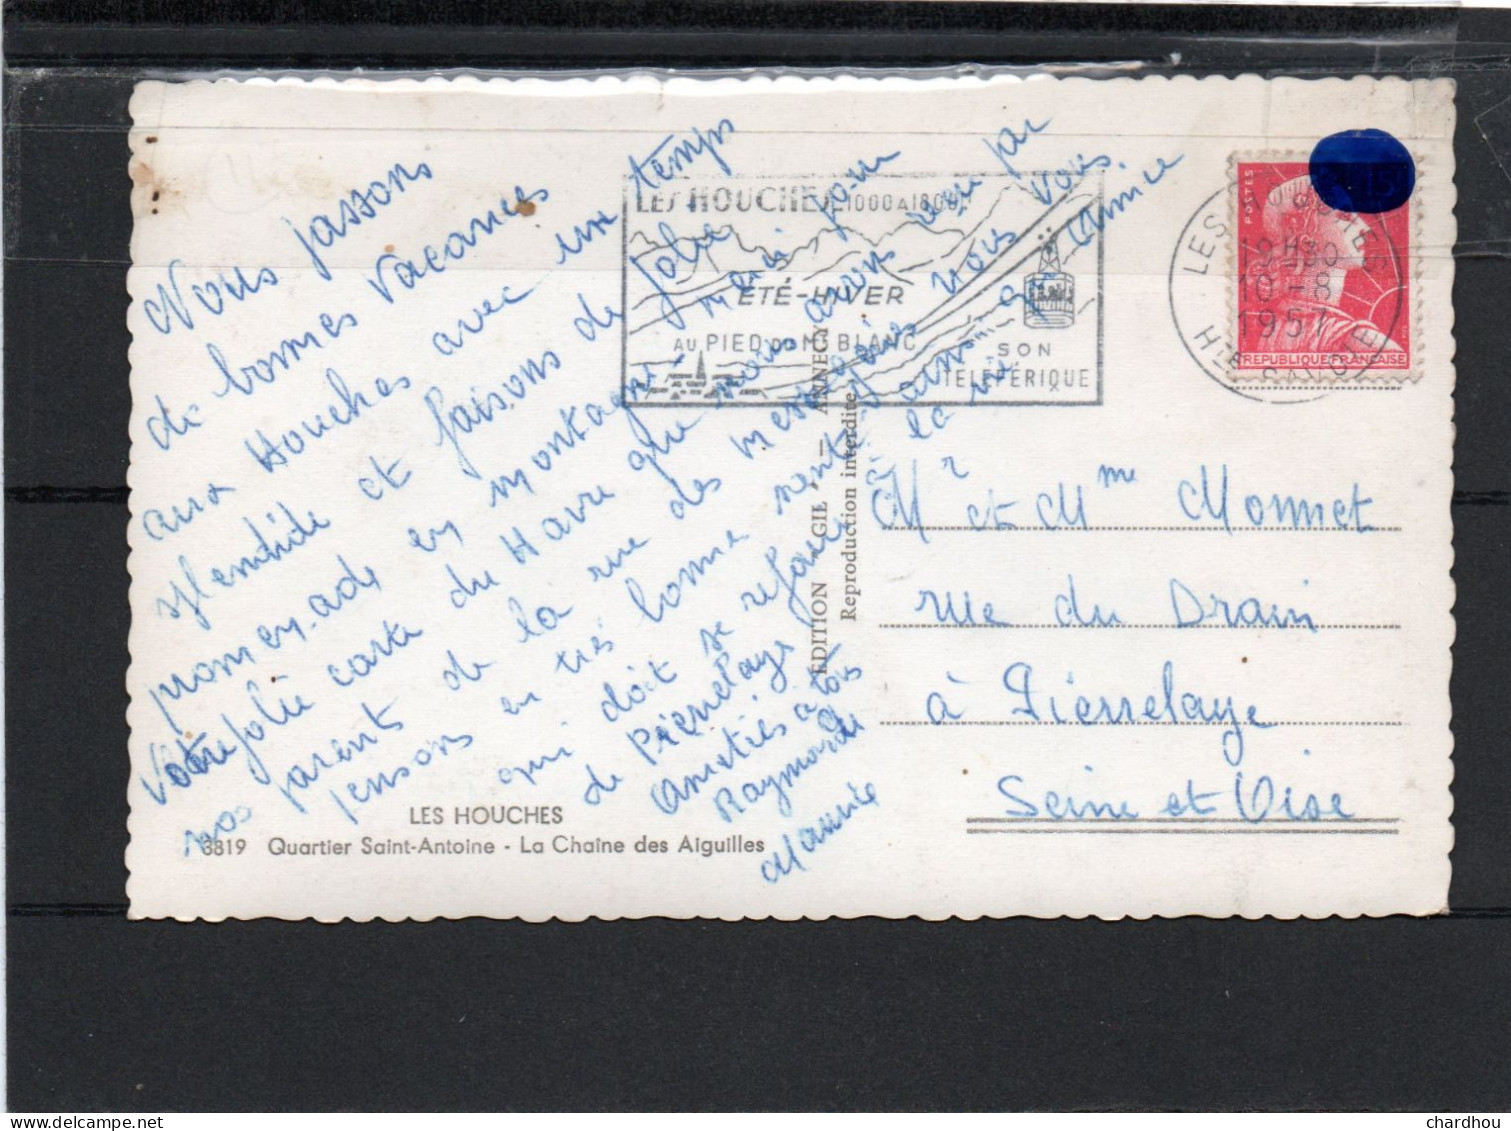 Nous passons
de bonnes vacances
aux Houches avec un temps
splendide et faisons de jolie
promenade en montagne, merci pour
Votre jolie carte du Havre que nous avons reçu par
nos parents de la rue des
pensons en très bonne santé,
qui doit se refaire
de Pierrelaye
Amitiés à tous
Raymonde
Maurice
LES HOUCHES 1000 A 1800
ÉTÉ-HIVER
AU PIED DU MT BLANC
SON
TÉLÉFÉRIQUE
POSTES
LES HOUCHES
19H30
10-8
1957
HTE SAVOIE
REPUBLIQUE FRANÇAISE
Mr et Mme Monnet
rue du Drain
à Pierrelaye
Seine et Oise
ÉDITION GIL — ANNECY
Reproduction interdite
LES HOUCHES
3819 Quartier Saint-Antoine - La Chaîne des Aiguilles
delcampe.net
chardhou